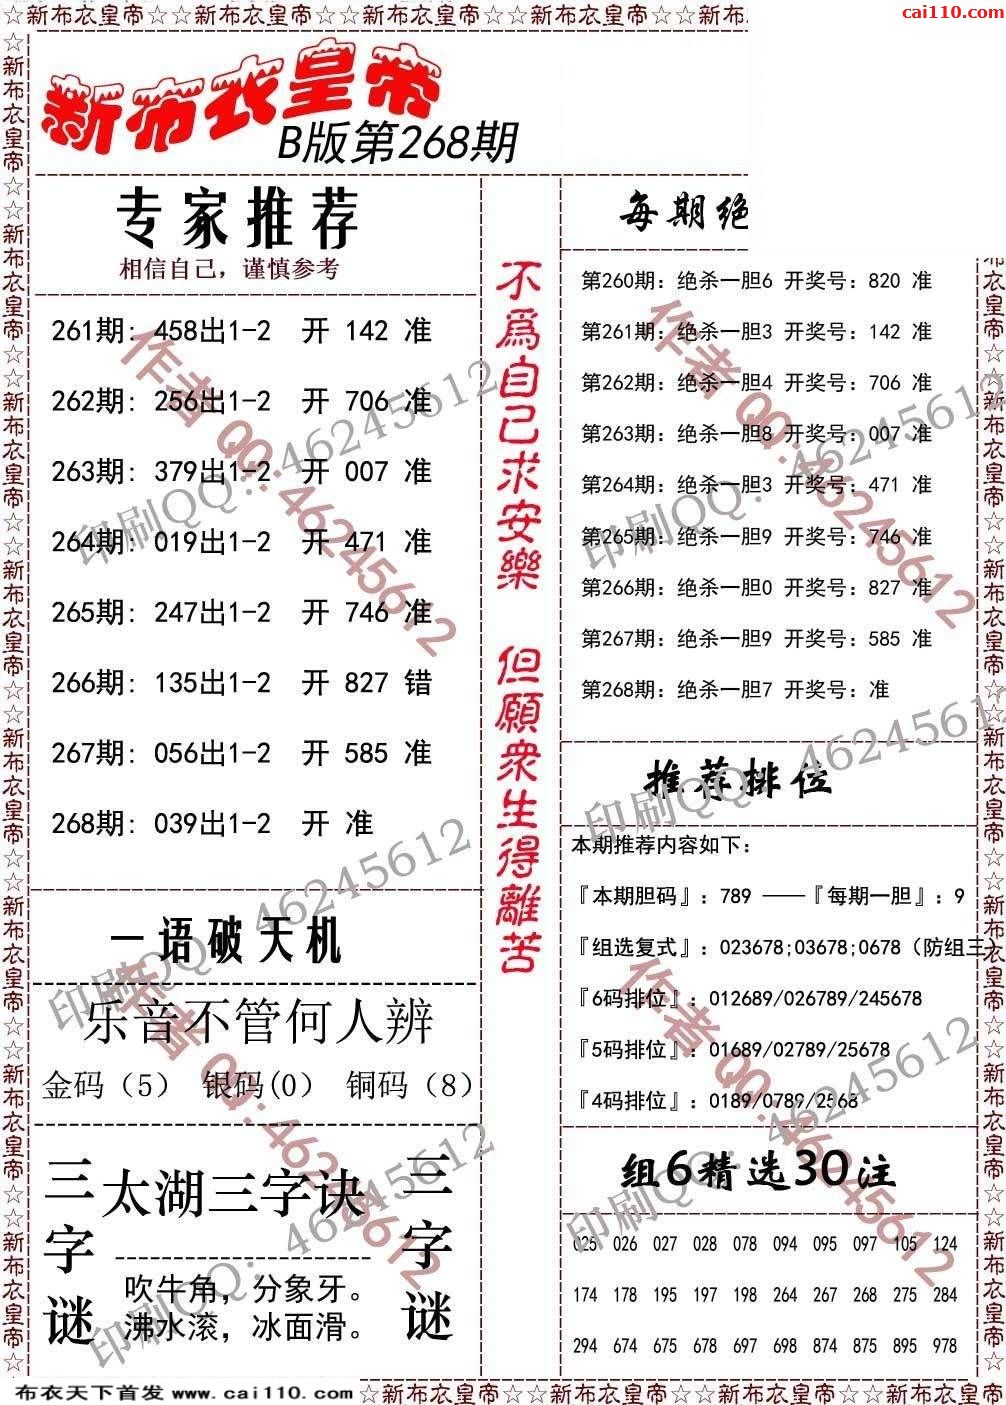 新布衣皇帝☆☆新布衣皇帝☆☆新布衣皇帝☆☆新布衣皇帝☆☆新布
cai110.com
新布衣皇帝
B版第268期
专家推荐
相信自己，谨慎参考
261期: 458出1-2 开 142 准
262期: 256出1-2 开 706 准
263期: 379出1-2 开 007 准
264期: 019出1-2 开 471 准
265期: 247出1-2 开 746 准
266期: 135出1-2 开 827 错
267期: 056出1-2 开 585 准
268期: 039出1-2 开 准
一语破天机
乐音不管何人辨
金码（5） 银码(0） 铜码（8）
三字谜
太湖三字诀
吹牛角，分象牙。
沸水滚，冰面滑。
三字谜
不爲自己求安樂 但願衆生得離苦
每期绝
第260期：绝杀一胆6 开奖号：820 准
第261期：绝杀一胆3 开奖号：142 准
第262期：绝杀一胆4 开奖号：706 准
第263期：绝杀一胆8 开奖号：007 准
第264期：绝杀一胆3 开奖号：471 准
第265期：绝杀一胆9 开奖号：746 准
第266期：绝杀一胆0 开奖号：827 准
第267期：绝杀一胆9 开奖号：585 准
第268期：绝杀一胆7 开奖号：准
推荐排位
本期推荐内容如下：
『本期胆码』：789 ——『每期一胆』：9
『组选复式』：023678;03678;0678（防组三）
『6码排位』：012689/026789/245678
『5码排位』：01689/02789/25678
『4码排位』：0189/0789/2568
组6精选30注
025 026 027 028 078 094 095 097 105 124
174 178 195 197 198 264 267 268 275 284
294 674 675 678 697 698 874 875 895 978
作者 QQ:46245612
印刷QQ：46245612
作者 QQ:46245612
印刷QQ：46245612
印刷QQ：46245612
印刷QQ：46245612
作者 QQ:46245612
作者 QQ:46245612
印刷QQ：46245612
印刷QQ：46245612
布衣天下首发 www.cai110.com
☆新布衣皇帝☆☆新布衣皇帝☆☆新布衣皇帝☆☆新布衣皇帝☆